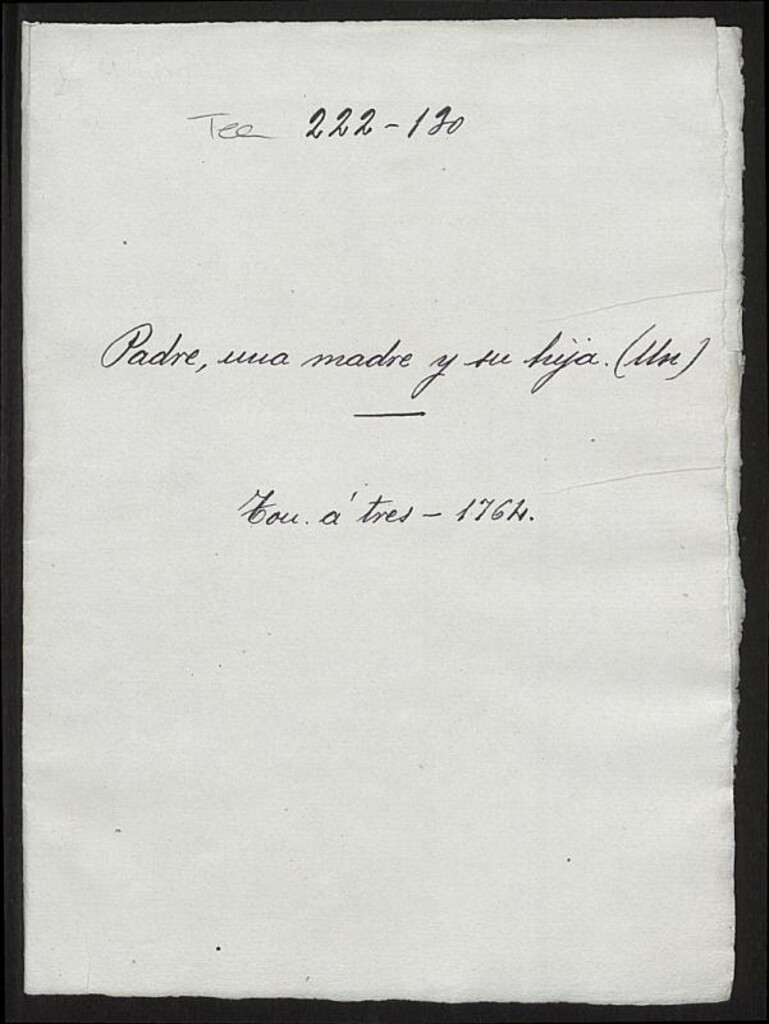 Tea 222-130
Padre, una madre y su hija. (Un)
Ton. á tres - 1764.